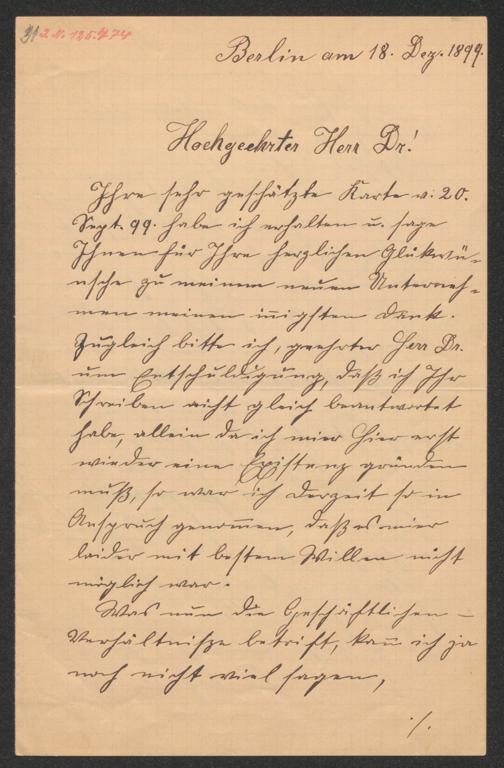 31
2.N. 125.474
Berlin am 18. Dez. 1899.
Hochgeehrter Herr Dr!
Ihre sehr geschätzte Karte v. 20.
Sept. 99. habe ich erhalten u. sage
Ihnen für Ihre herzlichen Glükwü-
nsche zu meinem neuen Unterneh-
men meinen iñigsten Dank.
Zugleich bitte ich, geehrter Herr Dr.
um Entschuldigung, daß ich Ihr
Schreiben nicht gleich beantwortet
habe, allein da ich mier hier erst
wieder eine Existenz gründen
muß, so war ich derzeit so in
Anspruch genom̄en, daß es mier
leider mit bestem Willen nicht
möglich war.
Was nun die Geschäftlichen –
Verhältnisse betrift, kañ ich ja
noch nicht viel sagen,
./.